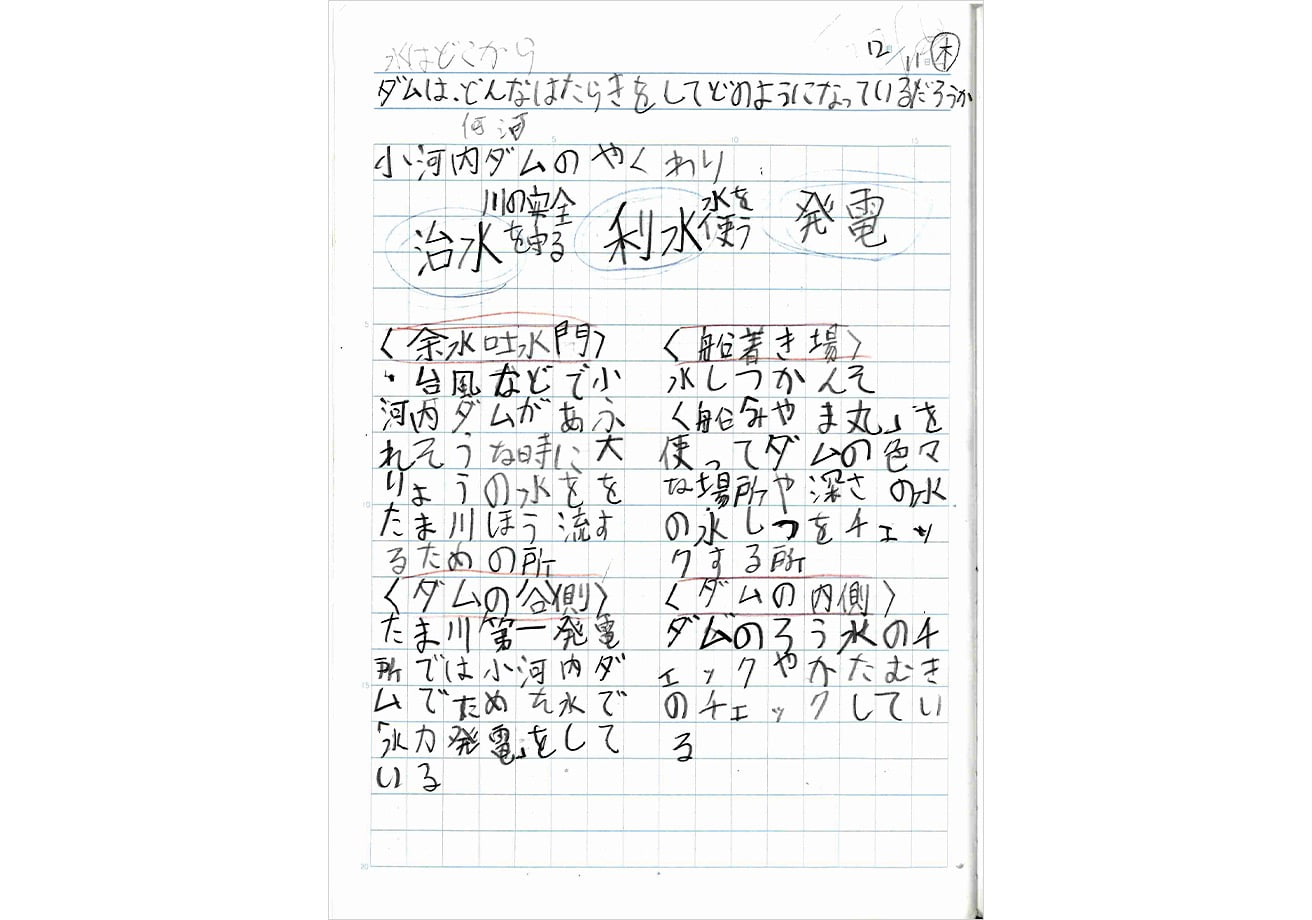 水はどこから
12/11 木
ダムは、どんなはたらきをしてどのようになっているだろうか
何 河
小河内ダムのやくわり
治水 川の安全を守る 利水 水を使う 発電
〈余水吐水門〉
・台風などで小
河内ダムがあふ
れそうな時に大
りょうの水をを
たま川ほう流す
るための所
〈ダムの谷側〉
たま川第一発電
所では小河内ダ
ムでためた水で
「水力発電」をして
いる
〈船着き場〉
水しつかんそ
く船「みやま丸」を
使ってダムの色々
な場所や深さの水
の水しつをチェッ
クする所
〈ダムの内側〉
ダムのろう水のチ
ェックやかたむき
のチェックしてい
る